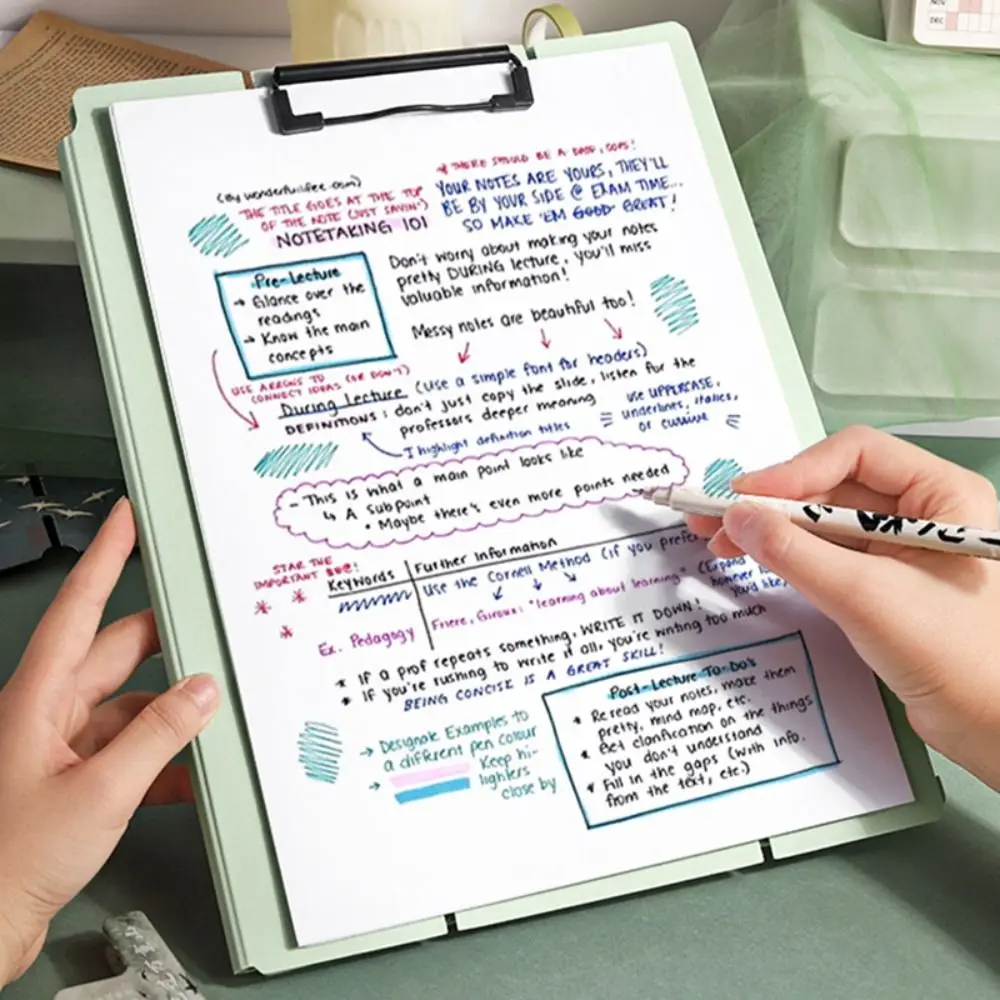 (By wonderfullifee.com)
THE TITLE GOES AT THE TOP
OF THE NOTE (JUST SAYIN')
NOTETAKING 101
* THERE SHOULD BE A DATE, OOPS!
YOUR NOTES ARE YOURS, THEY'LL
BE BY YOUR SIDE @ EXAM TIME...
SO MAKE 'EM GOOD GREAT!
Pre-Lecture
→ Glance over the
readings
→ Know the main
concepts
Don't worry about making your notes
pretty DURING lecture, you'll miss
valuable information!
Messy notes are beautiful too!
USE ARROWS TO
CONNECT IDEAS (OR DON'T)
During Lecture (Use a simple font for headers)
DEFINITIONS: don't just copy the slide, listen for the
professors deeper meaning
I highlight definition titles
USE UPPERCASE,
underlines, italics,
or cursive
- This is what a main point looks like
↳ A subpoint
• Maybe there's even more points needed
STAR THE
IMPORTANT
Keywords
Further Information
Use the Cornell Method (if you prefer
Ex. Pedagogy
Friere, Giroux: "learning about learning"
(Expand
however
you'd like)
* If a prof repeats something, WRITE IT DOWN!
* If you're rushing to write it all, you're writing too much
* BEING CONCISE IS A GREAT SKILL!
→ Designate Examples to
a different pen colour
→ Keep hi-
lighters
close by
Post-Lecture To-Do's
* Reread your notes, make them
pretty, mind map, etc.
* Get clarification on the things
you don't understand
* Fill in the gaps (with info.
from the text, etc.)
NOV
DEC